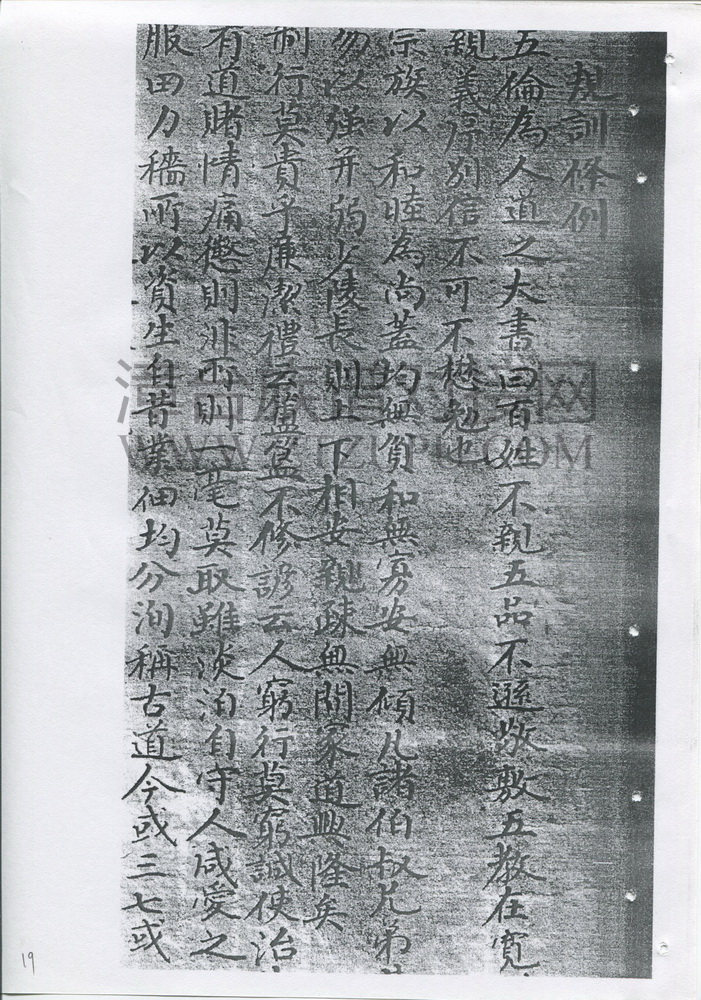 規訓條例
五倫為人道之大書曰百姓不親五品不遜敬敷五教在寬
親義序別信不可不懋勉也
宗族以和睦為尚蓋均無貧和無寡安無傾凡諸伯叔兄弟
勿以強并弱少陵長則上下相安親疎無間家道興隆矣
制行莫貴乎廉潔禮云簠簋不修諺云人窮行莫窮誠使治
有道賭情痛懲則非所則一毫莫取雖淡泊自守人咸愛之
服田力穡所以資生自昔業佃均分洵稱古道今或三七或
WWW.
19